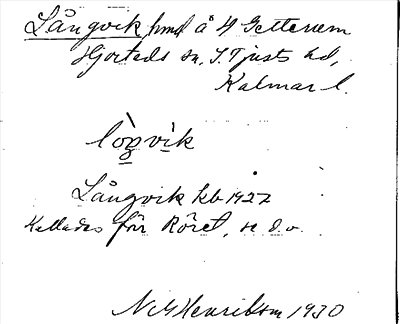 Långvik hmd å 4 Getternem
Hjorteds sn, S. Tjusts hd,
Kalmar l.
lòŋvìk
Långvik kb 1927
Kallades förr Röret, se d. o.
N G Henriksson 1930